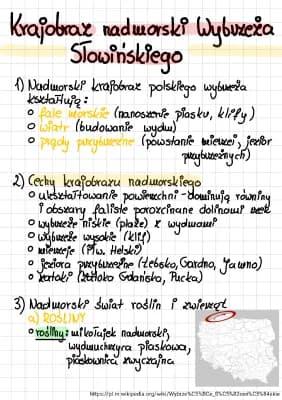 Krajobraz nadmorski Wybrzeża
Słowińskiego
1) Nadmorski krajobraz polskiego wybrzeża
kształtują:
o fale morskie (nanoszenie piasku, klify)
o wiatr (budowanie wydm)
o prądy przybrzeżne (powstanie mierzei, jezior
przybrzeżnych)
2) Cechy krajobrazu nadmorskiego
o ukształtowanie powierzchni - dominują równiny
i obszary faliste porozcinane dolinami rzek
o wybrzeże niskie (plaże) z wydmami
o wybrzeże wysokie (klif)
o mierzeje (Płw. Helski)
o jeziora przybrzeżne (Łebsko, Gardno, Jamno)
o zatoki (Zatoka Gdańska, Pucka)
3) Nadmorski świat roślin i zwierząt
a) ROŚLINY
o rośliny: mikołajek nadmorski,
wydmuchrzyca piaskowa,
piaskownica zwyczajna